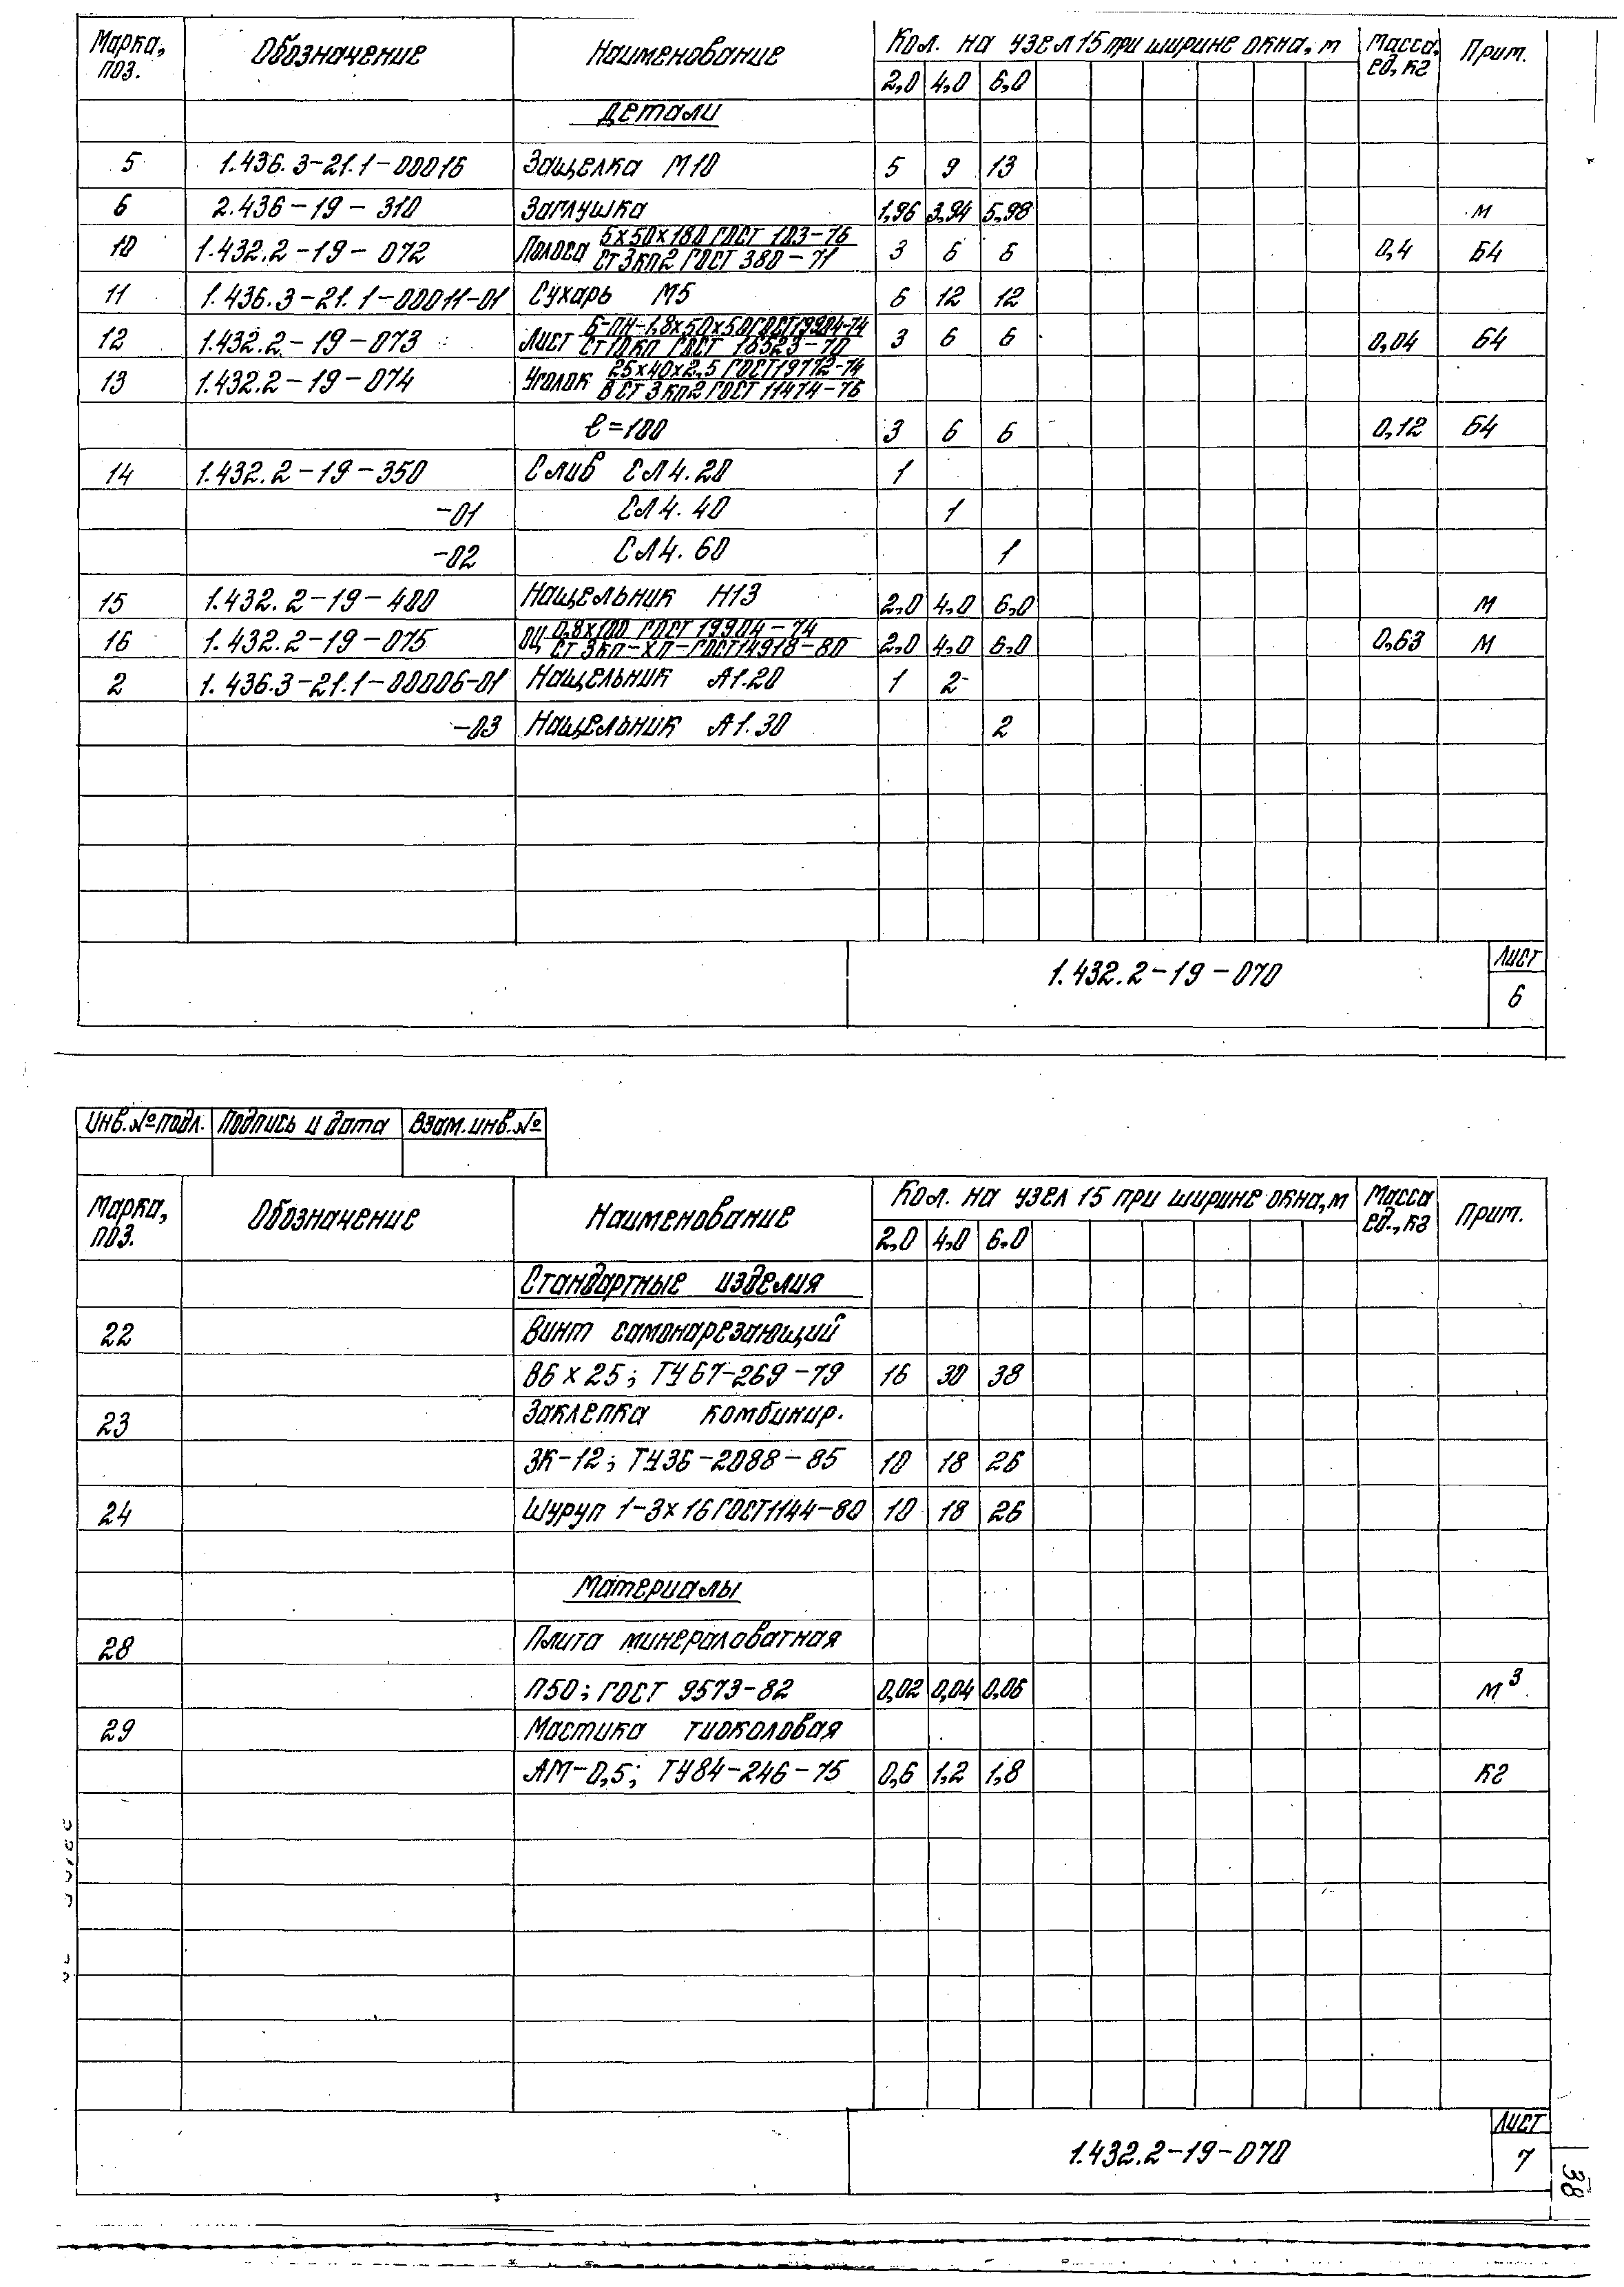 Марка, поз. Обозначение Наименование Кол. на узел 15 при ширине окна, м Масса, ед, кг Прим.
2,0 4,0 6,0
Детали
5 1.436.3-21.1-00016 Защелка М10 5 9 13
6 2.436-19-310 Заглушка 1,96 3,94 5,98 м
10 1.432.2-19-072 Полоса 5х50х180 ГОСТ 103-76 / Ст3кп2 ГОСТ 380-71 3 6 6 0,4 БЧ
11 1.436.3-21.1-00011-01 Сухарь М5 6 12 12
12 1.432.2-19-073 Лист Б-ПН-1,8х50х50 ГОСТ 19904-74 / Ст10кп ГОСТ 16523-70 3 6 6 0,04 БЧ
13 1.432.2-19-074 Уголок 25х40х2,5 ГОСТ 19772-74 / ВСт3кп2 ГОСТ 11474-76
ℓ=100 3 6 6 0,12 БЧ
14 1.432.2-19-350 Слив СЛ4.20 1
-01 СЛ4.40 1
-02 СЛ4.60 1
15 1.432.2-19-400 Нащельник Н13 2,0 4,0 6,0 м
16 1.432.2-19-075 ОЦ 0,8х100 ГОСТ 19904-74 / Ст3кп-ХП-ГОСТ14918-80 2,0 4,0 6,0 0,63 м
2 1.436.3-21.1-00006-01 Нащельник А1.20 1 2
-03 Нащельник А1.30 2
1.432.2-19-070 Лист
6
Инв.№подл. Подпись и дата Взам.инв.№
Марка, поз. Обозначение Наименование Кол. на узел 15 при ширине окна, м Масса ед., кг Прим.
2,0 4,0 6,0
Стандартные изделия
22 Винт самонарезающий
В6х25; ТУ67-269-79 16 30 38
23 Заклепка комбинир.
ЗК-12; ТУ36-2088-85 10 18 26
24 Шуруп 1-3х16 ГОСТ1144-80 10 18 26
Материалы
28 Плита минераловатная
П50; ГОСТ 9573-82 0,02 0,04 0,06 м³
29 Мастика тиоколовая
АМ-0,5; ТУ84-246-75 0,6 1,2 1,8 кг
1.432.2-19-070 Лист
7
38